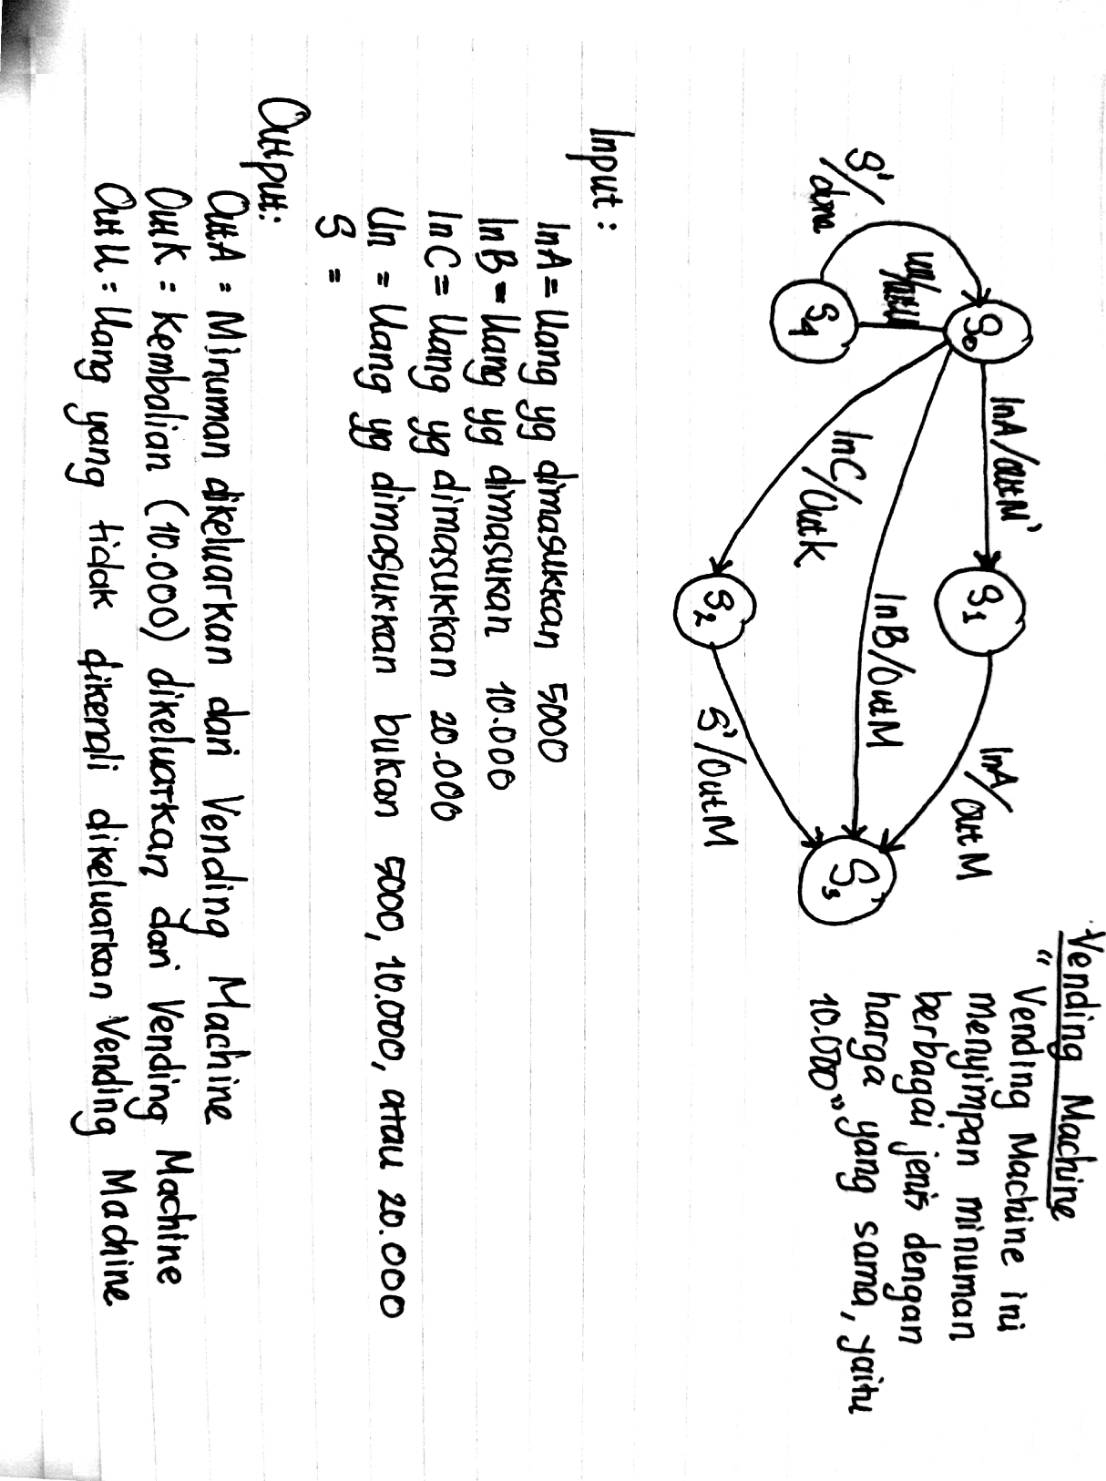 Vending Machine
" Vending Machine ini
menyimpan minuman
berbagai jenis dengan
harga yang sama, yaitu
10.000"
InA/OutM'
S1
InA/
OutM
S0
S'/
Un/OutU
S4
InB/OutM
S3
InC/OutK
S2
S'/OutM
Input :
InA = Uang yg dimasukkan 5000
InB = Uang yg dimasukan 10.000
InC = Uang yg dimasukkan 20.000
Un = Uang yg dimasukkan bukan 5000, 10.000, atau 20.000
S =
Output:
OutA = Minuman dikeluarkan dari Vending Machine
OutK = Kembalian (10.000) dikeluarkan dari Vending Machine
OutU = Uang yang tidak dikenali dikeluarkan Vending Machine